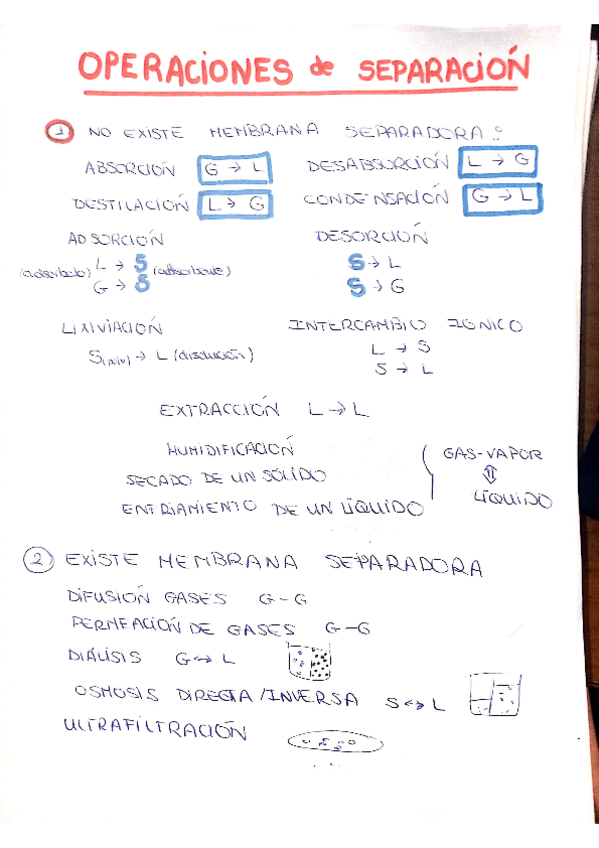 OPERACIONES de SEPARACIÓN
1 NO EXISTE MEMBRANA SEPARADORA:
ABSORCIÓN G → L DESABSORCIÓN L → G
DESTILACIÓN L → G CONDENSACIÓN G → L
ADSORCIÓN DESORCIÓN
(adsorbato) L → S (adsorbente) S → L
G → S S → G
LIXIVIACIÓN INTERCAMBIO IÓNICO
S → L (disolución) L → S
S → L
EXTRACCIÓN L → L
HUMIDIFICACIÓN
SECADO DE UN SÓLIDO
ENFRIAMIENTO DE UN LÍQUIDO
GAS-VAPOR
⇕
LÍQUIDO
2 EXISTE MEMBRANA SEPARADORA
DIFUSIÓN GASES G - G
PERMEACIÓN DE GASES G - G
DIÁLISIS G ↔ L
OSMOSIS DIRECTA / INVERSA S ↔ L
ULTRAFILTRACIÓN